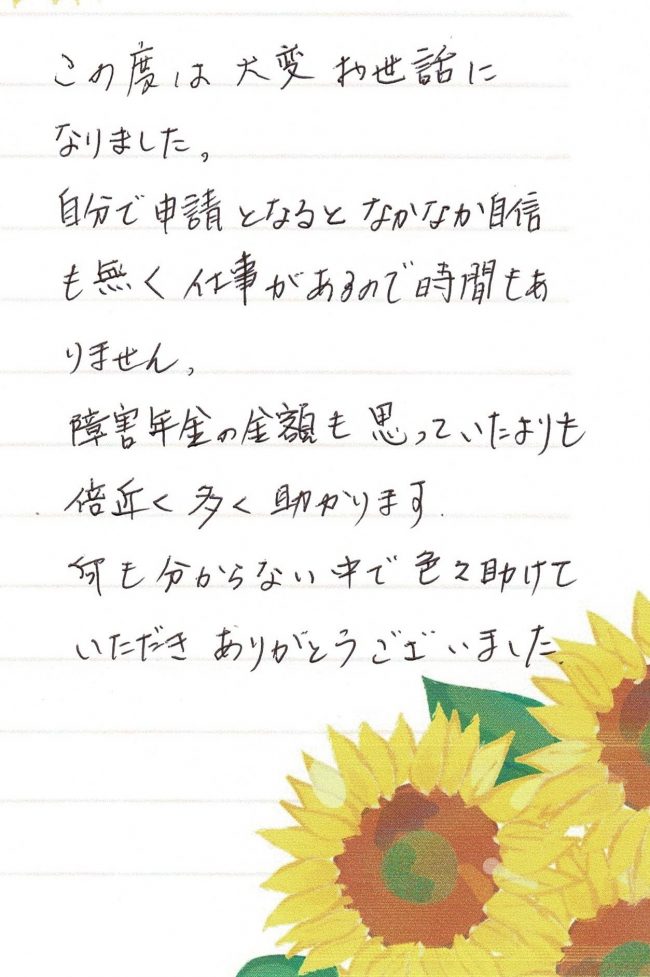 この度は 大変 お世話に
なりました。
自分で申請となると なかなか自信
も無く 仕事があるので時間もあ
りません。
障害年金の金額も 思っていたよりも
倍近く 多く 助かります.
何も分からない中で 色々助けて
いただき ありがとうございました.